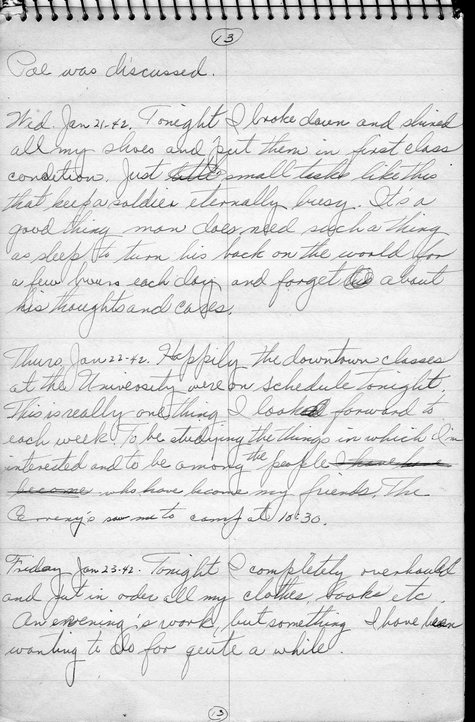 13
Poe was discussed.
Wed. Jan 21-42. Tonight I broke down and shined
all my shoes and put them in first class
condition. Just little small tasks like this
that keep a soldier eternally busy. It's a
good thing man does need such a thing
as sleep to turn his back on the world for
a few hours each day and forget about
his thoughts and cares.
Thurs Jan 22-42. Happily the downtown classes
at the University were on schedule tonight.
This is really one thing I look forward to
each week. To be studying the things in which I'm
interested and to be among the people I have have
become who have become my friends. The
Cerveny's saw me to camp at 10:30.
Friday Jan 23-42. Tonight I completely overhauled
and put in order all my clothes, books etc.
An evening's work, but something I have been
wanting to do for quite a while.
13